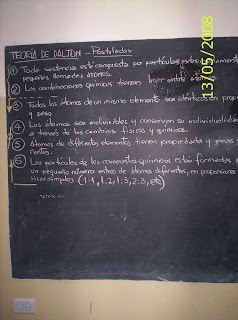 TEORÍA DE DALTON - Postulados
① Toda sustancia está compuesta por partículas extremadamente
pequeñas llamadas ATOMOS.
② Las combinaciones químicas tienen lugar entre átomos.
③ Todos los átomos de un mismo elemento son idénticos en
y peso
④ Los átomos son indivisibles y conservan su individualidad
a través de los cambios físicos y químicos.
⑤ Atomos de diferentes elementos tienen propiedades y pesos
rentes.
⑥ Las partículas de los compuestos químicos están formadas
un pequeño número entero de átomos diferentes, en proporciones
ricas simples (1:1, 1:2, 1:3, 2:3, etc)
13/05/2008